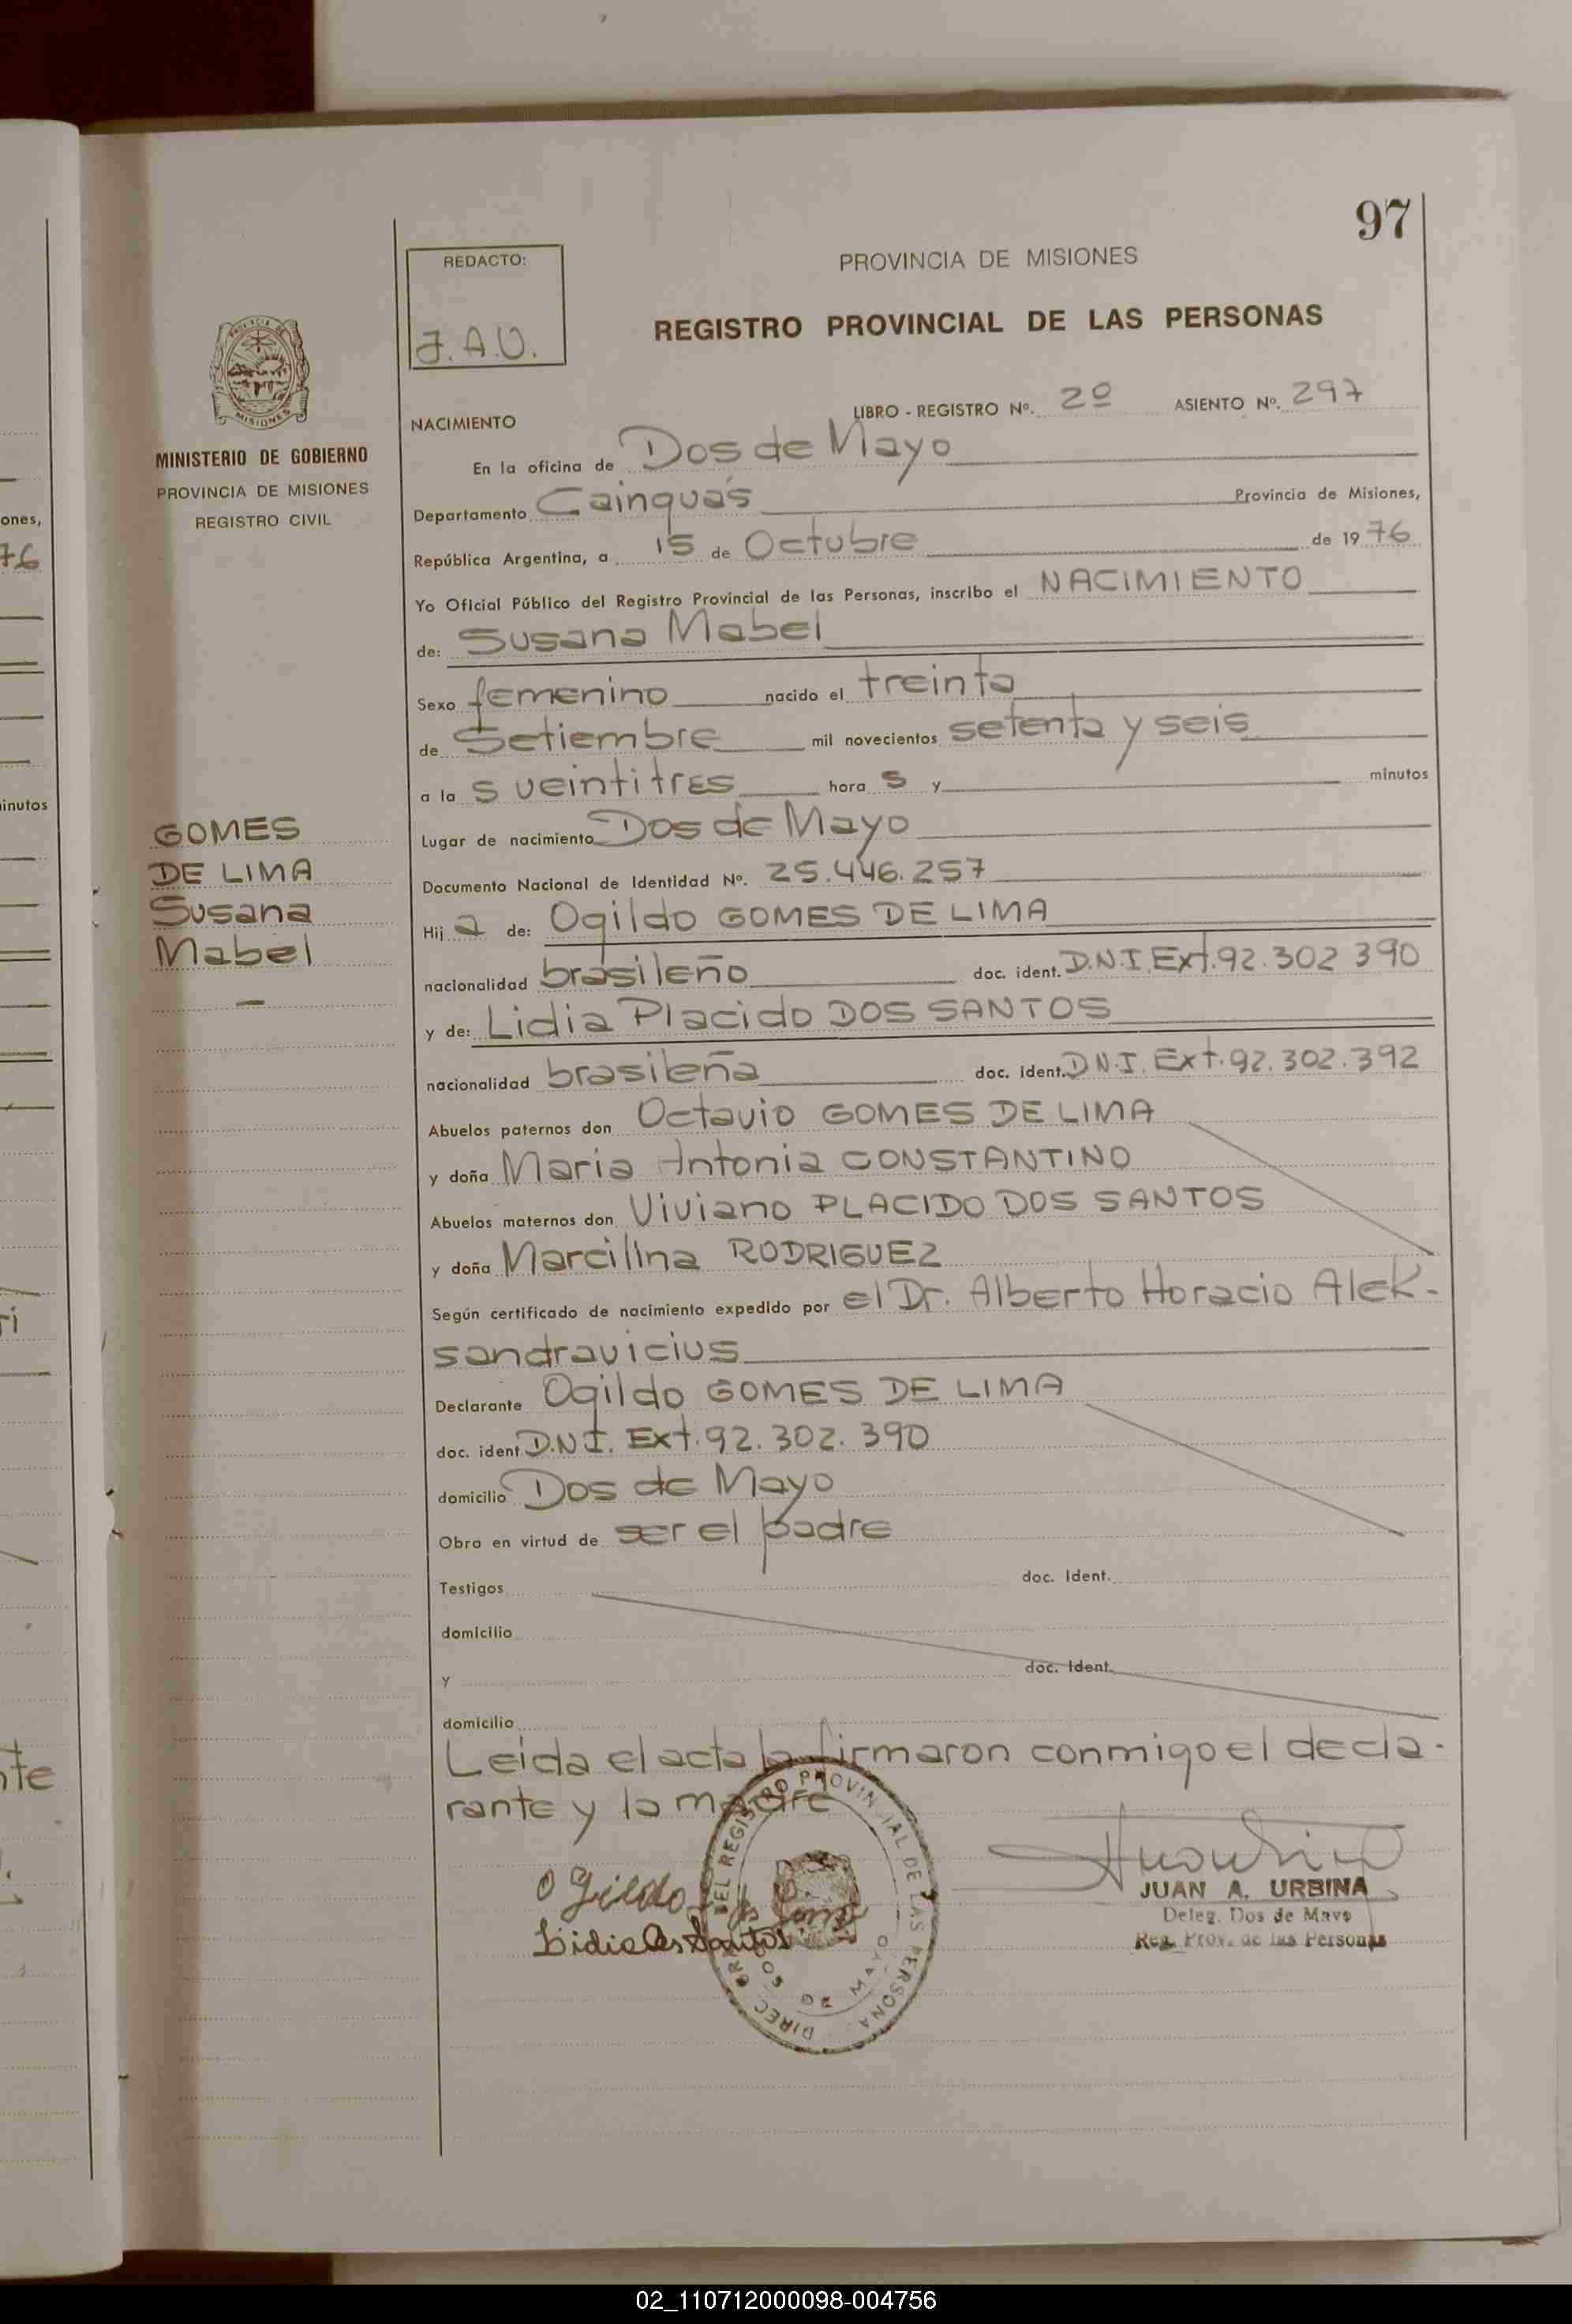 97
REDACTO:
J.A.U.
PROVINCIA DE MISIONES
REGISTRO PROVINCIAL DE LAS PERSONAS
MISIONES
MINISTERIO DE GOBIERNO
PROVINCIA DE MISIONES
REGISTRO CIVIL
NACIMIENTO LIBRO - REGISTRO Nº. 2º ASIENTO Nº. 297
En la oficina de Dos de Mayo
Departamento Cainguás Provincia de Misiones,
República Argentina, a 15 de Octubre de 1976
Yo Oficial Público del Registro Provincial de las Personas, inscribo el NACIMIENTO
de: Susana Mabel
Sexo femenino nacido el treinta
de Setiembre mil novecientos setenta y seis
a la s veintitres hora s y minutos
Lugar de nacimiento Dos de Mayo
Documento Nacional de Identidad Nº. 25.446.257
Hij a de: Ogildo GOMES DE LIMA
nacionalidad brasileño doc. ident. D.N.I. Ext. 92.302 390
y de: Lidia Placido DOS SANTOS
nacionalidad brasileña doc. ident. D.N.I. Ext. 92.302.392
Abuelos paternos don Octavio GOMES DE LIMA
y doña Maria Antonia CONSTANTINO
Abuelos maternos don Viviano PLACIDO DOS SANTOS
y doña Marcilina RODRIGUEZ
Según certificado de nacimiento expedido por el Dr. Alberto Horacio Alek-
sandravicius
Declarante Ogildo GOMES DE LIMA
doc. ident. D.N.I. Ext. 92.302.390
domicilio Dos de Mayo
Obra en virtud de ser el padre
Testigos doc. Ident.
domicilio
y doc. Ident.
domicilio
Leida el acta la firmaron conmigo el decla-
rante y la madre
GOMES
DE LIMA
Susana
Mabel
Ogildo
Lidia dos Santos
JUAN A. URBINA
Deleg. Dos de Mayo
Reg. Prov. de las Personas
DEL REGISTRO PROVINCIAL DE LAS PERSONA
DOS DE MAYO
ones,
76
inutos
nte
02_110712000098-004756